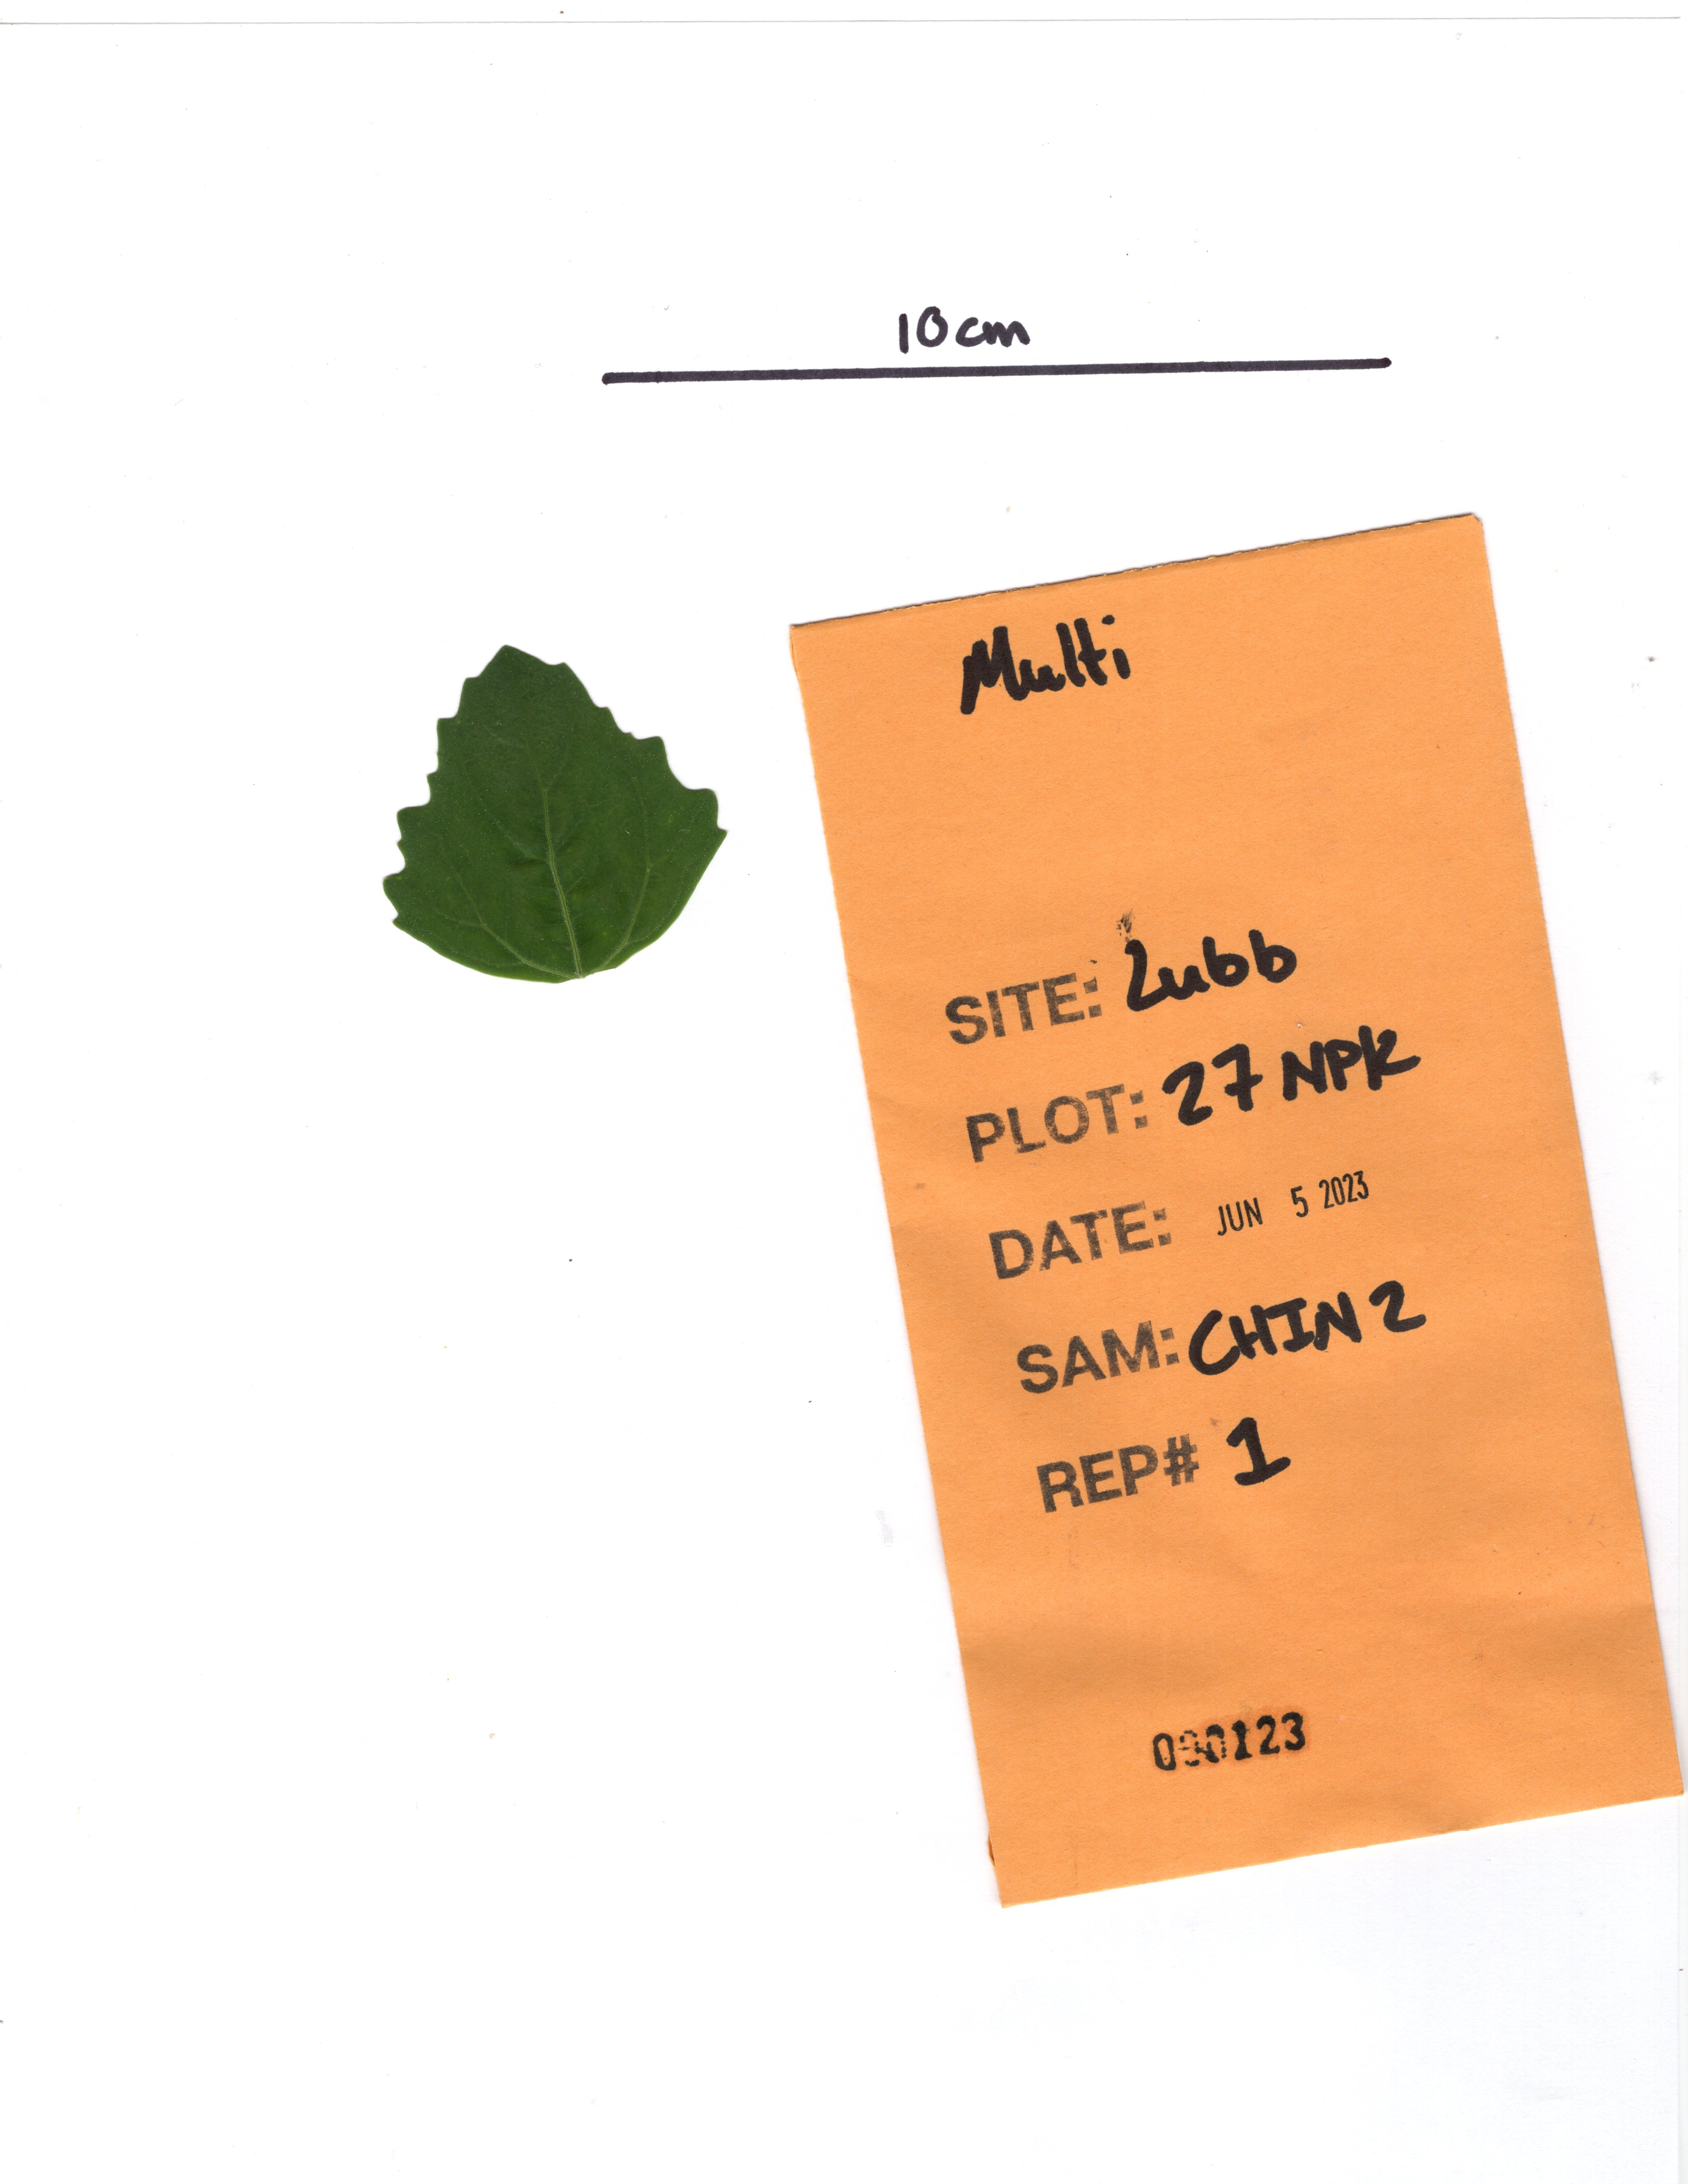 10cm
Multi
SITE: Lubb
PLOT: 27 NPK
DATE: JUN 5 2023
SAM: CHIN 2
REP# 1
000123